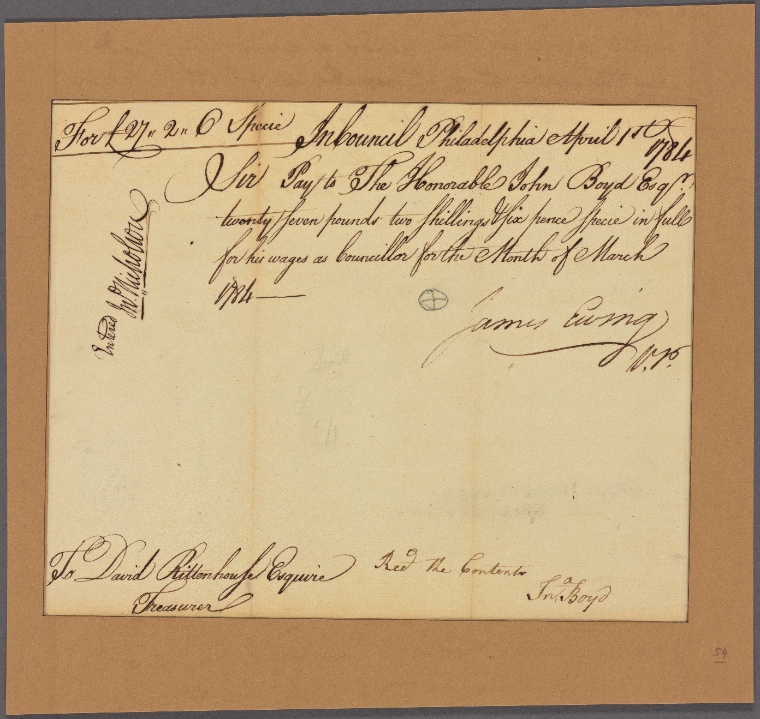 For £ 27 " 2 " 6 Specie
In Council Philadelphia April 1st 1784
Sir Pay to The Honorable John Boyd Esqr.
twenty seven pounds two shillings & six pence specie in full
for his wages as Councillor for the Month of March
1784
James Ewing
V.P.
Entered Jno Nicholson
To David Rittenhouse Esquire
Treasurer
Recd the Contents
Jno Boyd
54